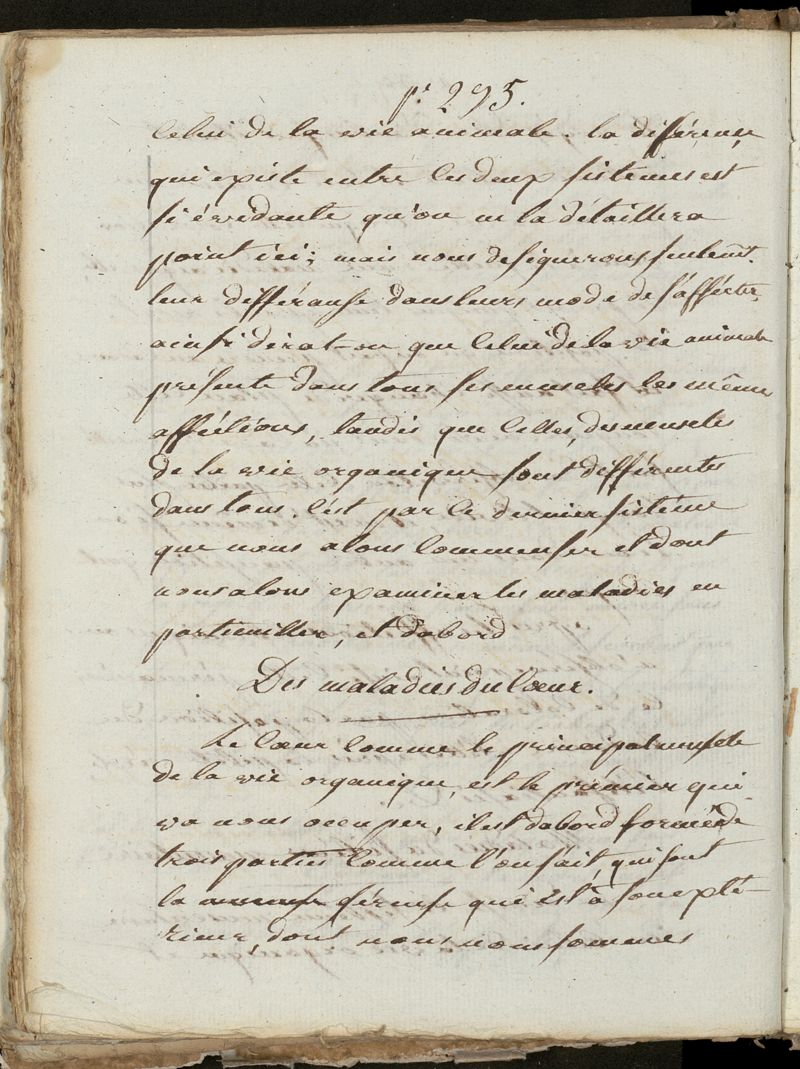 p. 295.
celui de la vie animale. la diférence
qui existe entre les deux sistèmes est
si évidante qu'on ne la détaillera
point ici; mais nous désignerons seulemt.
leur différanse dans leurs mode de s'affécter,
ainsi dirat-on que celui de la vie animale
présente dans tous ses muscles les mêmes
afféctions, tandis que celles, des muscles
de la vie organique sont différentes
dans tous. c'est par ce dernier sistême
que nous alons commenser et dont
nous alons examiner les maladies en
particuiller, et dabord
Des maladies du Cœur.
Le cœur comme le principal muscle
de la vie organique, est le prémier qui
va nous occuper, il est dabord formé de
trois parties comme l'on sait, qui sont
la séreuse qui est à son exté-
rieur, dont nous nous sommes